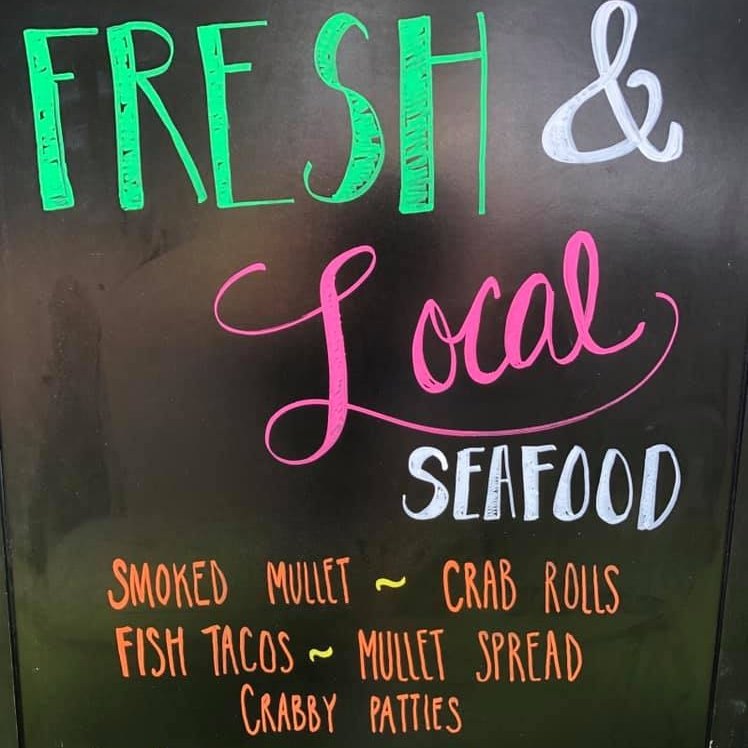 FRESH &
Local
SEAFOOD
SMOKED MULLET ~ CRAB ROLLS
FISH TACOS ~ MULLET SPREAD
CRABBY PATTIES